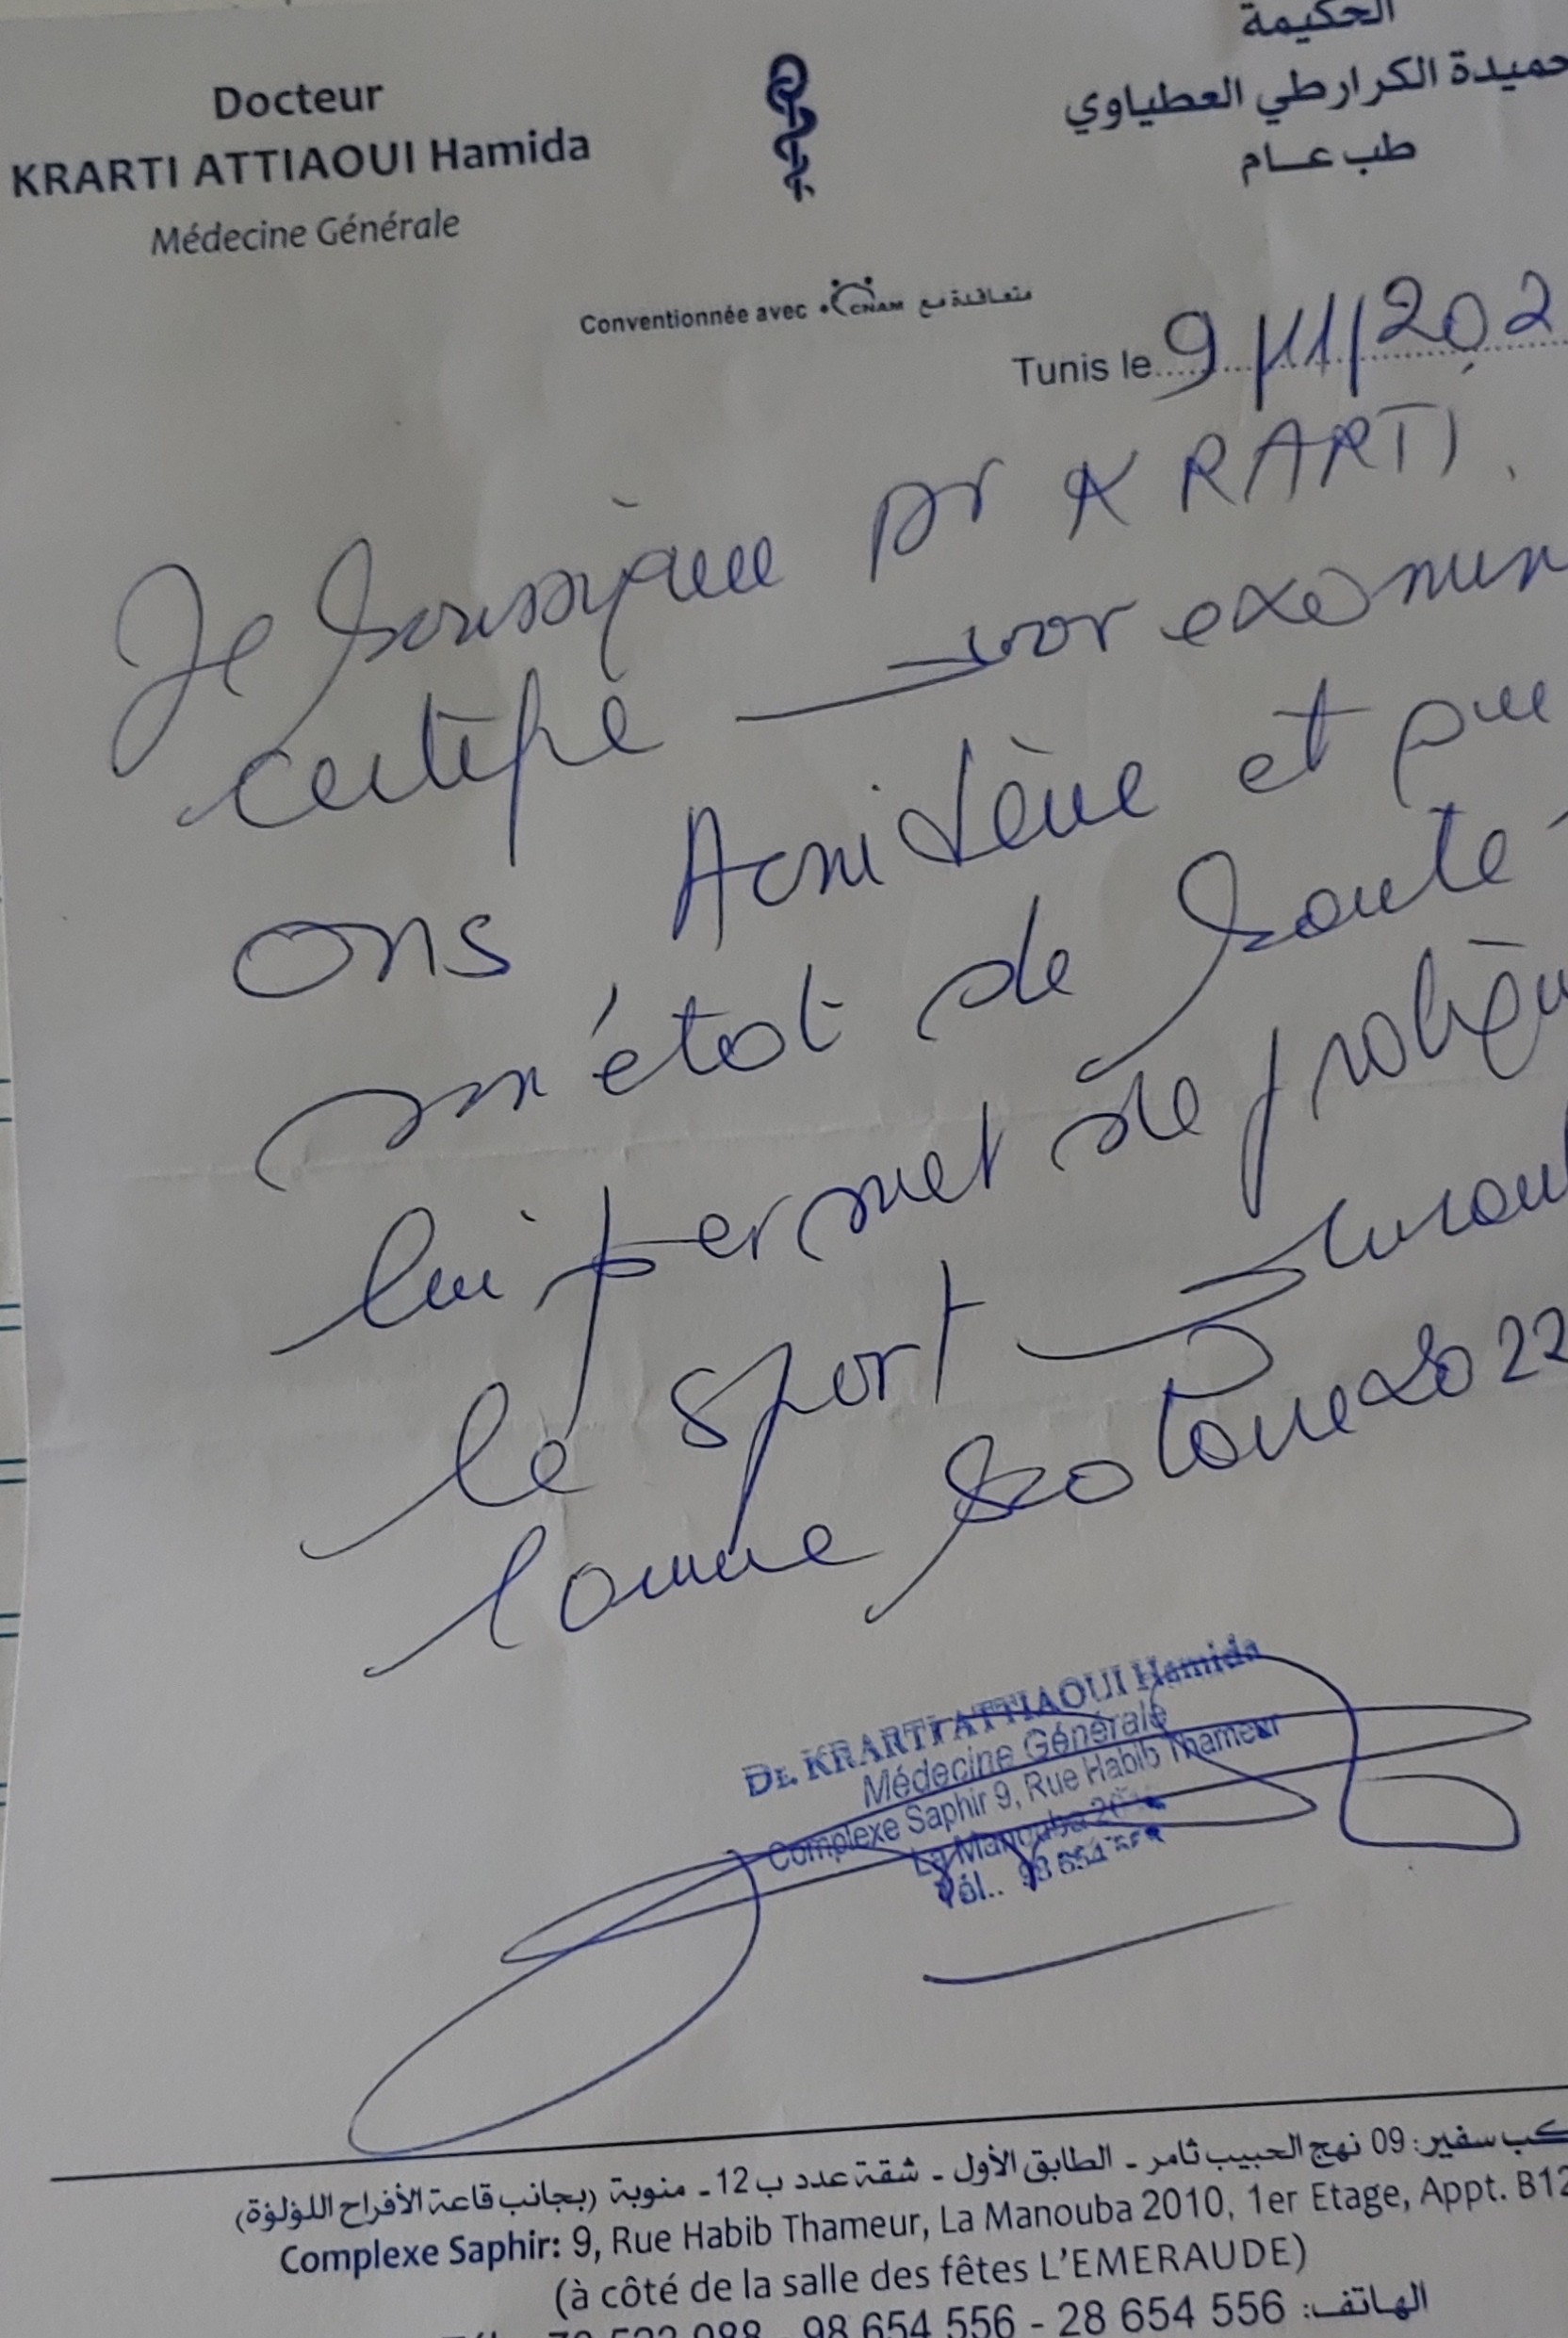 Docteur
KRARTI ATTIAOUI Hamida
Médecine Générale
الحكيمة
حميدة الكرارطي العطياوي
طب عــام
Conventionnée avec CNAM متعاقدة مع
Tunis le 9/11/202
Je soussignée Dr KRARTI
certifie avoir examin
Ons et que
son état de santé
lui permet de pratiqu
le sport durant
l'année scolaire 2022
Dr. KRARTI ATTIAOUI Hamida
Médecine Générale
Complexe Saphir 9, Rue Habib Thameur
La Manouba
Tél.. 98 654
كب سفير: 09 نهج الحبيب ثامر - الطابق الأول - شقة عدد ب 12 - منوبة (بجانب قاعة الأفراح اللؤلؤة)
Complexe Saphir: 9, Rue Habib Thameur, La Manouba 2010, 1er Etage, Appt. B12
(à côté de la salle des fêtes L'EMERAUDE)
98 654 556 - 28 654 556 :الهاتف